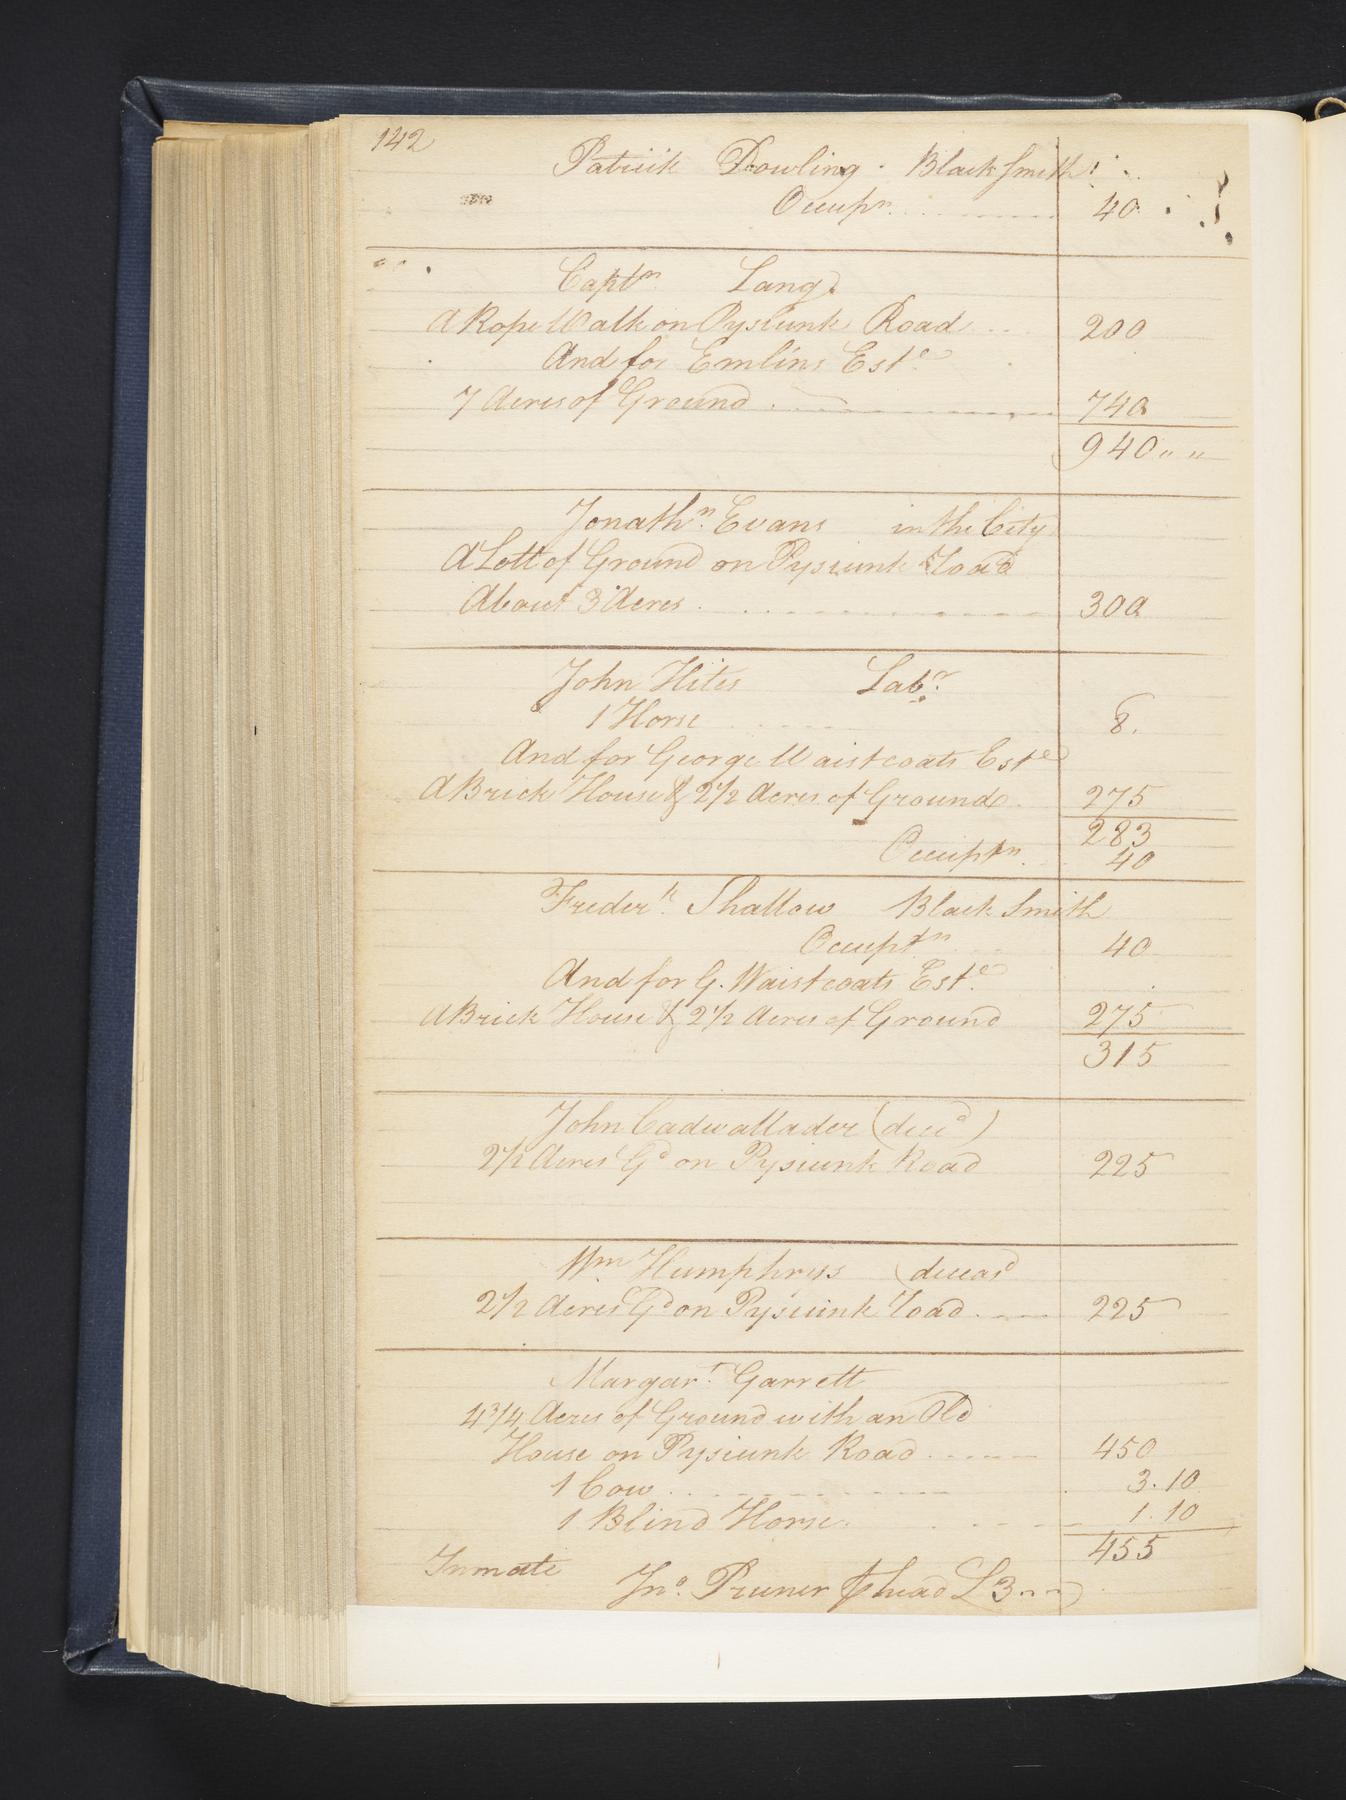 142
Patrick Dowling. Black Smith
Occupn. 40
Captn. Lang
A Rope Walk on Pysiunk Road 200
And for Emlins Este
7 Acres of Ground 740
940 " "
Jonathn. Evans in the City
A Lott of Ground on Pysiunk Road
About 3 Acres 300
John Hites Labr.
1 Horse 8.
And for George Waistcoats Este
A Brick House & 2 1/2 Acres of Ground 275
283
Occuptn. 40
Frederk. Shallow Black Smith
Occuptn 40
And for G. Waistcoats Este.
A Brick House & 2 1/2 Acres of Ground 275
315
John Cadwallader (decd)
2 1/2 Acres Gd on Pysiunk Road 225
Wm Humphres (deceasd
2 1/2 Acres Gd on Pysiunk Road 225
Margart. Garrett
4 3/4 Acres of Ground with an Old
House on Pysiunk Road 450
1 Cow 3.10
1 Blind Horse 1.10
455
Inmate Jno. Pruner head £3